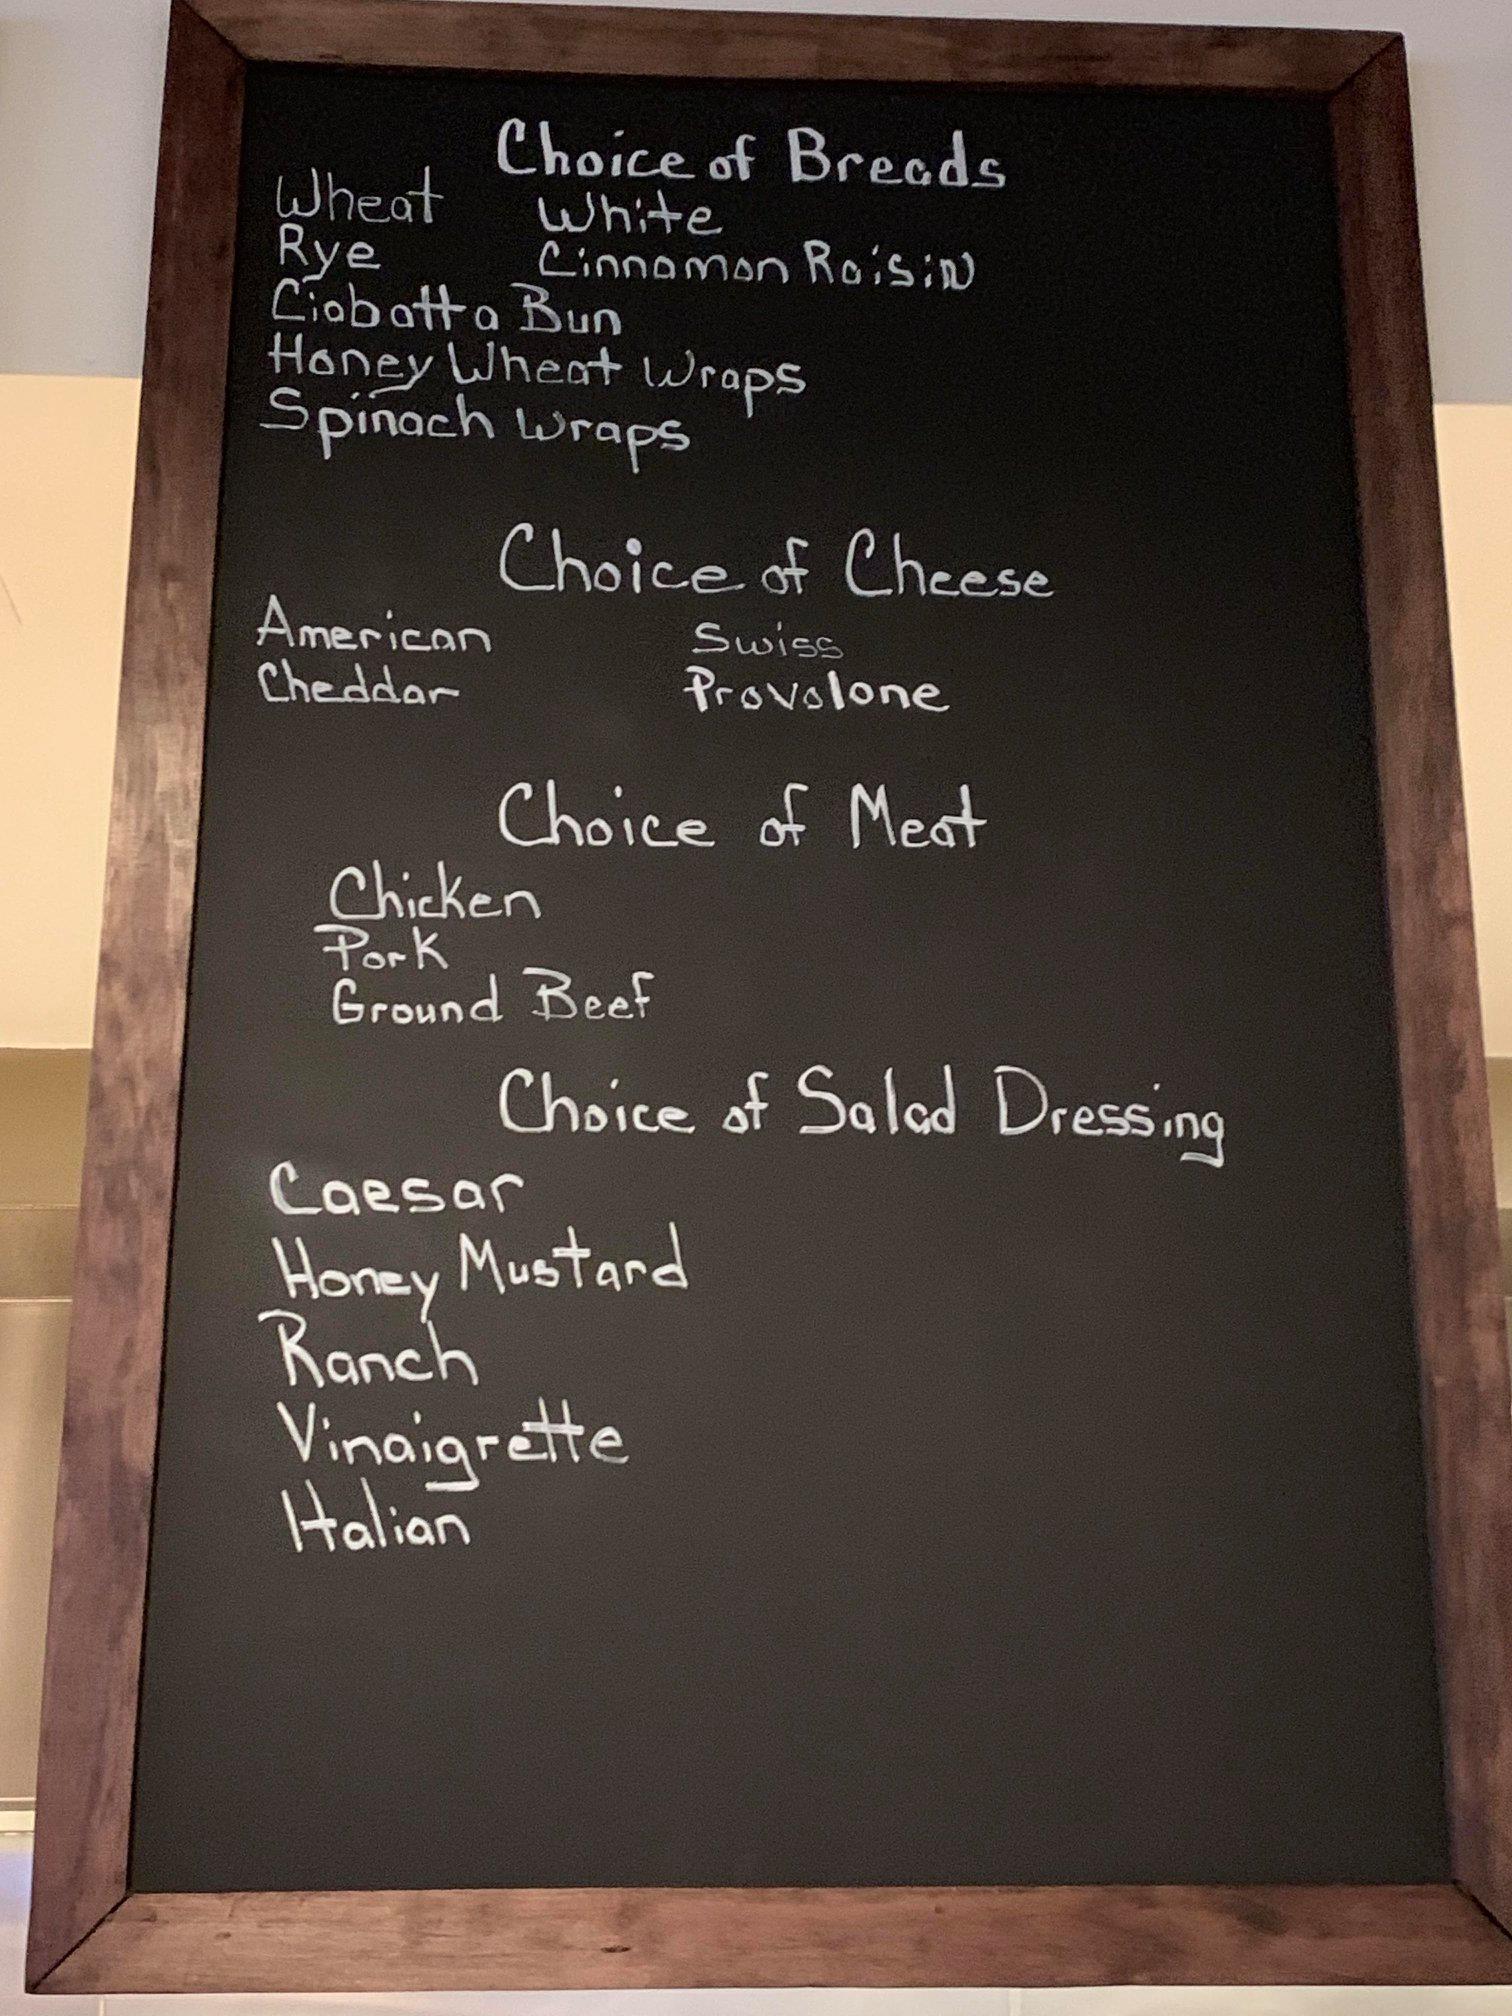 Choice of Breads
Wheat White
Rye Cinnamon Raisin
Ciabatta Bun
Honey Wheat Wraps
Spinach Wraps
Choice of Cheese
American Swiss
Cheddar Provolone
Choice of Meat
Chicken
Pork
Ground Beef
Choice of Salad Dressing
Caesar
Honey Mustard
Ranch
Vinaigrette
Italian